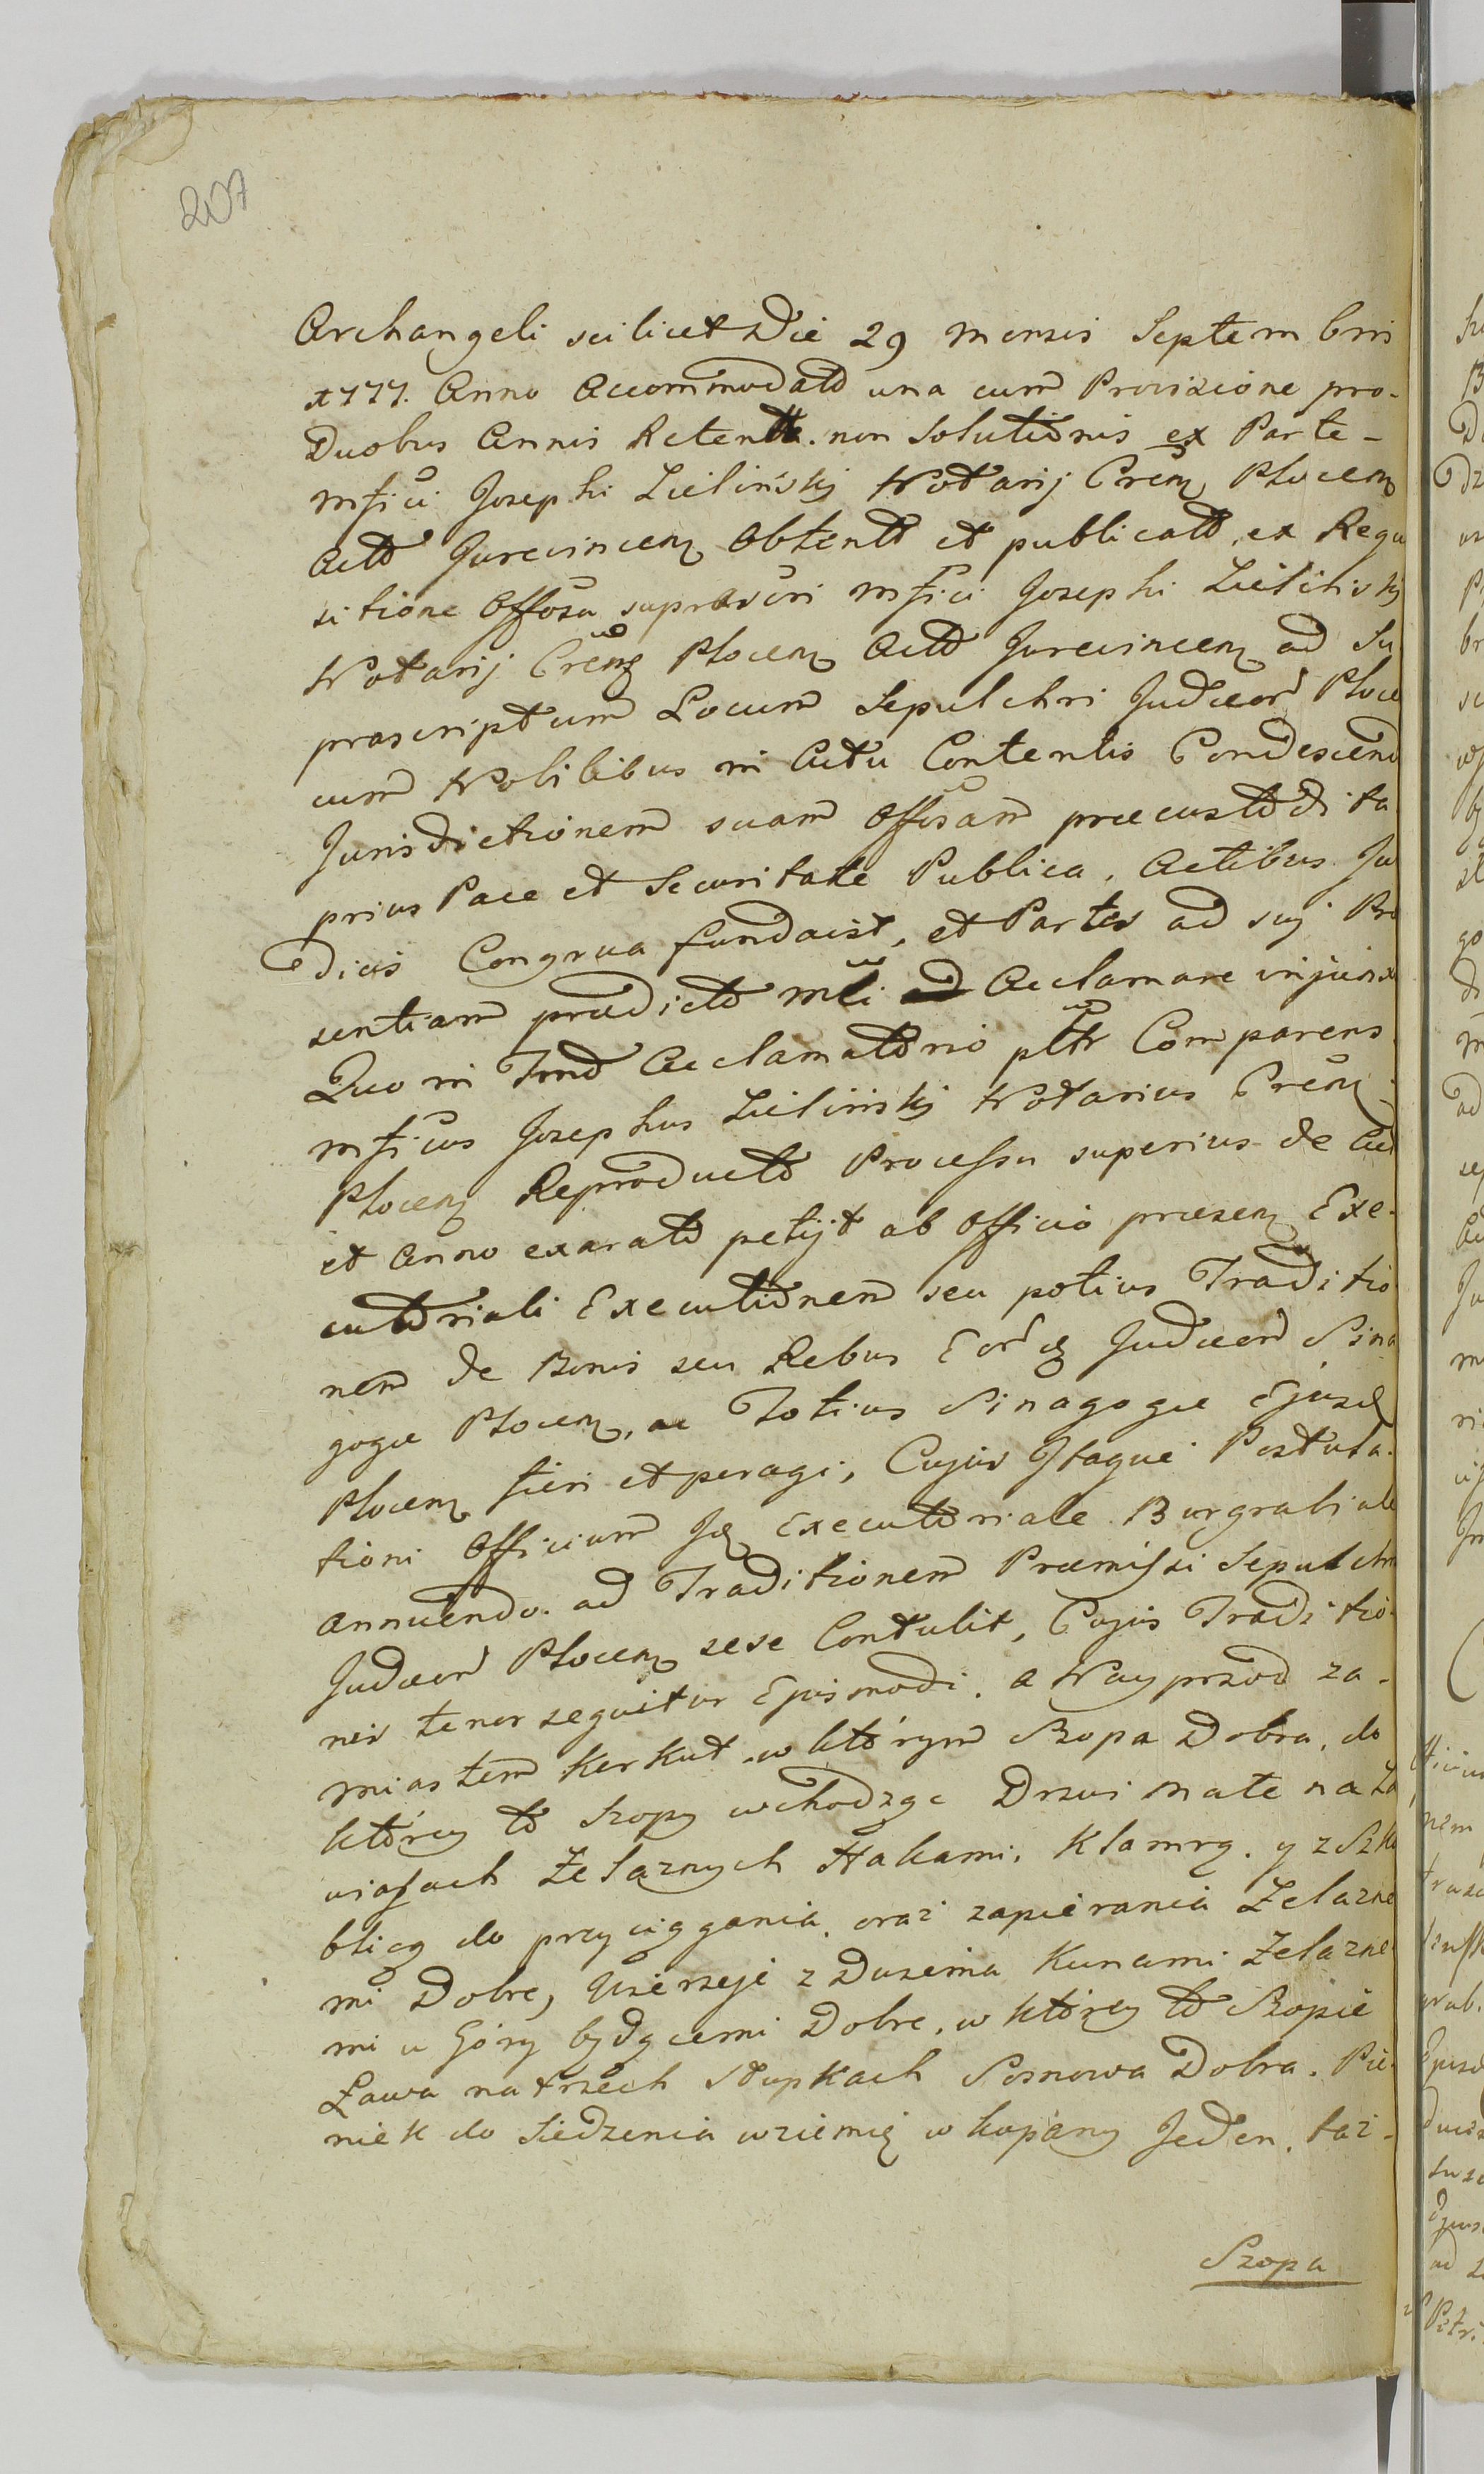 207
Archangeli scilicet Die 29 mensis Septembris
1777. Anno Accommodato una cum Provizione pro-
Duobus Annis Retenta. non Solutionis ex Parte-
mfici Josephi Zielinskj Notarij Crem Plocen
Acto Jurevincen Obtento et publicato, ex Requi
sitione Offosa suprascri mfici Josephi Zielinskj
Notarij Crem Plocen Acto Jurevincen ad Su
prascriptum Locum Sepulchri Judæor Ploce
cum Nobilibus in Actu Contentis Condescend
Jurisdictionem suam Offosam præcustodita
prius Pace et Securitate Publica, Actibus Ju
dicis Congrua fundavit, et Partes ad sui Præ
sentiam prædicto mli Acclamare injunx
Quo in Tmno Acclamatorio pltr Comparens
mficus Josephus Zielinskj Notarius Crem
Plocen Reproducto Processu superius de Act
et Anno exarato petijt ab Officio præsen Exe-
cutoriali Executionem seu potius Traditio
nem de Bonis seu Rebus Eor Judæor Sina
gogæ Plocen, ac Totius Sinagogæ Ejusd
Plocen fieri et peragi, Cujus Itaque Postula-
tioni Officium Executoriale Burgrabiale
annuendo. ad Traditionem Præmissi Sepulchri
Judæor Plocen sese Contulit, Cujus Traditio-
nis tenor sequitur Ejusmodi. a Nayprzod za-
miastem Kerkut w którym Szopa Dobra, do
którey to Szopy wchodząc Drzwi małe na Za
wiasach Żelaznych Hakami, Klamrą. y z Szko
blicą do przyciągania oraz zapierania Żelazne
mi Dobre, Wierzeje z Dwiema Kunami Żelazne
mi u Góry będącemi Dobre, w którey to Szopie
Ława na trzech słupkach Sosnowa Dobra. Pie-
niek do Siedzenia w ziemię wkopany Jeden, taż-
Szopa